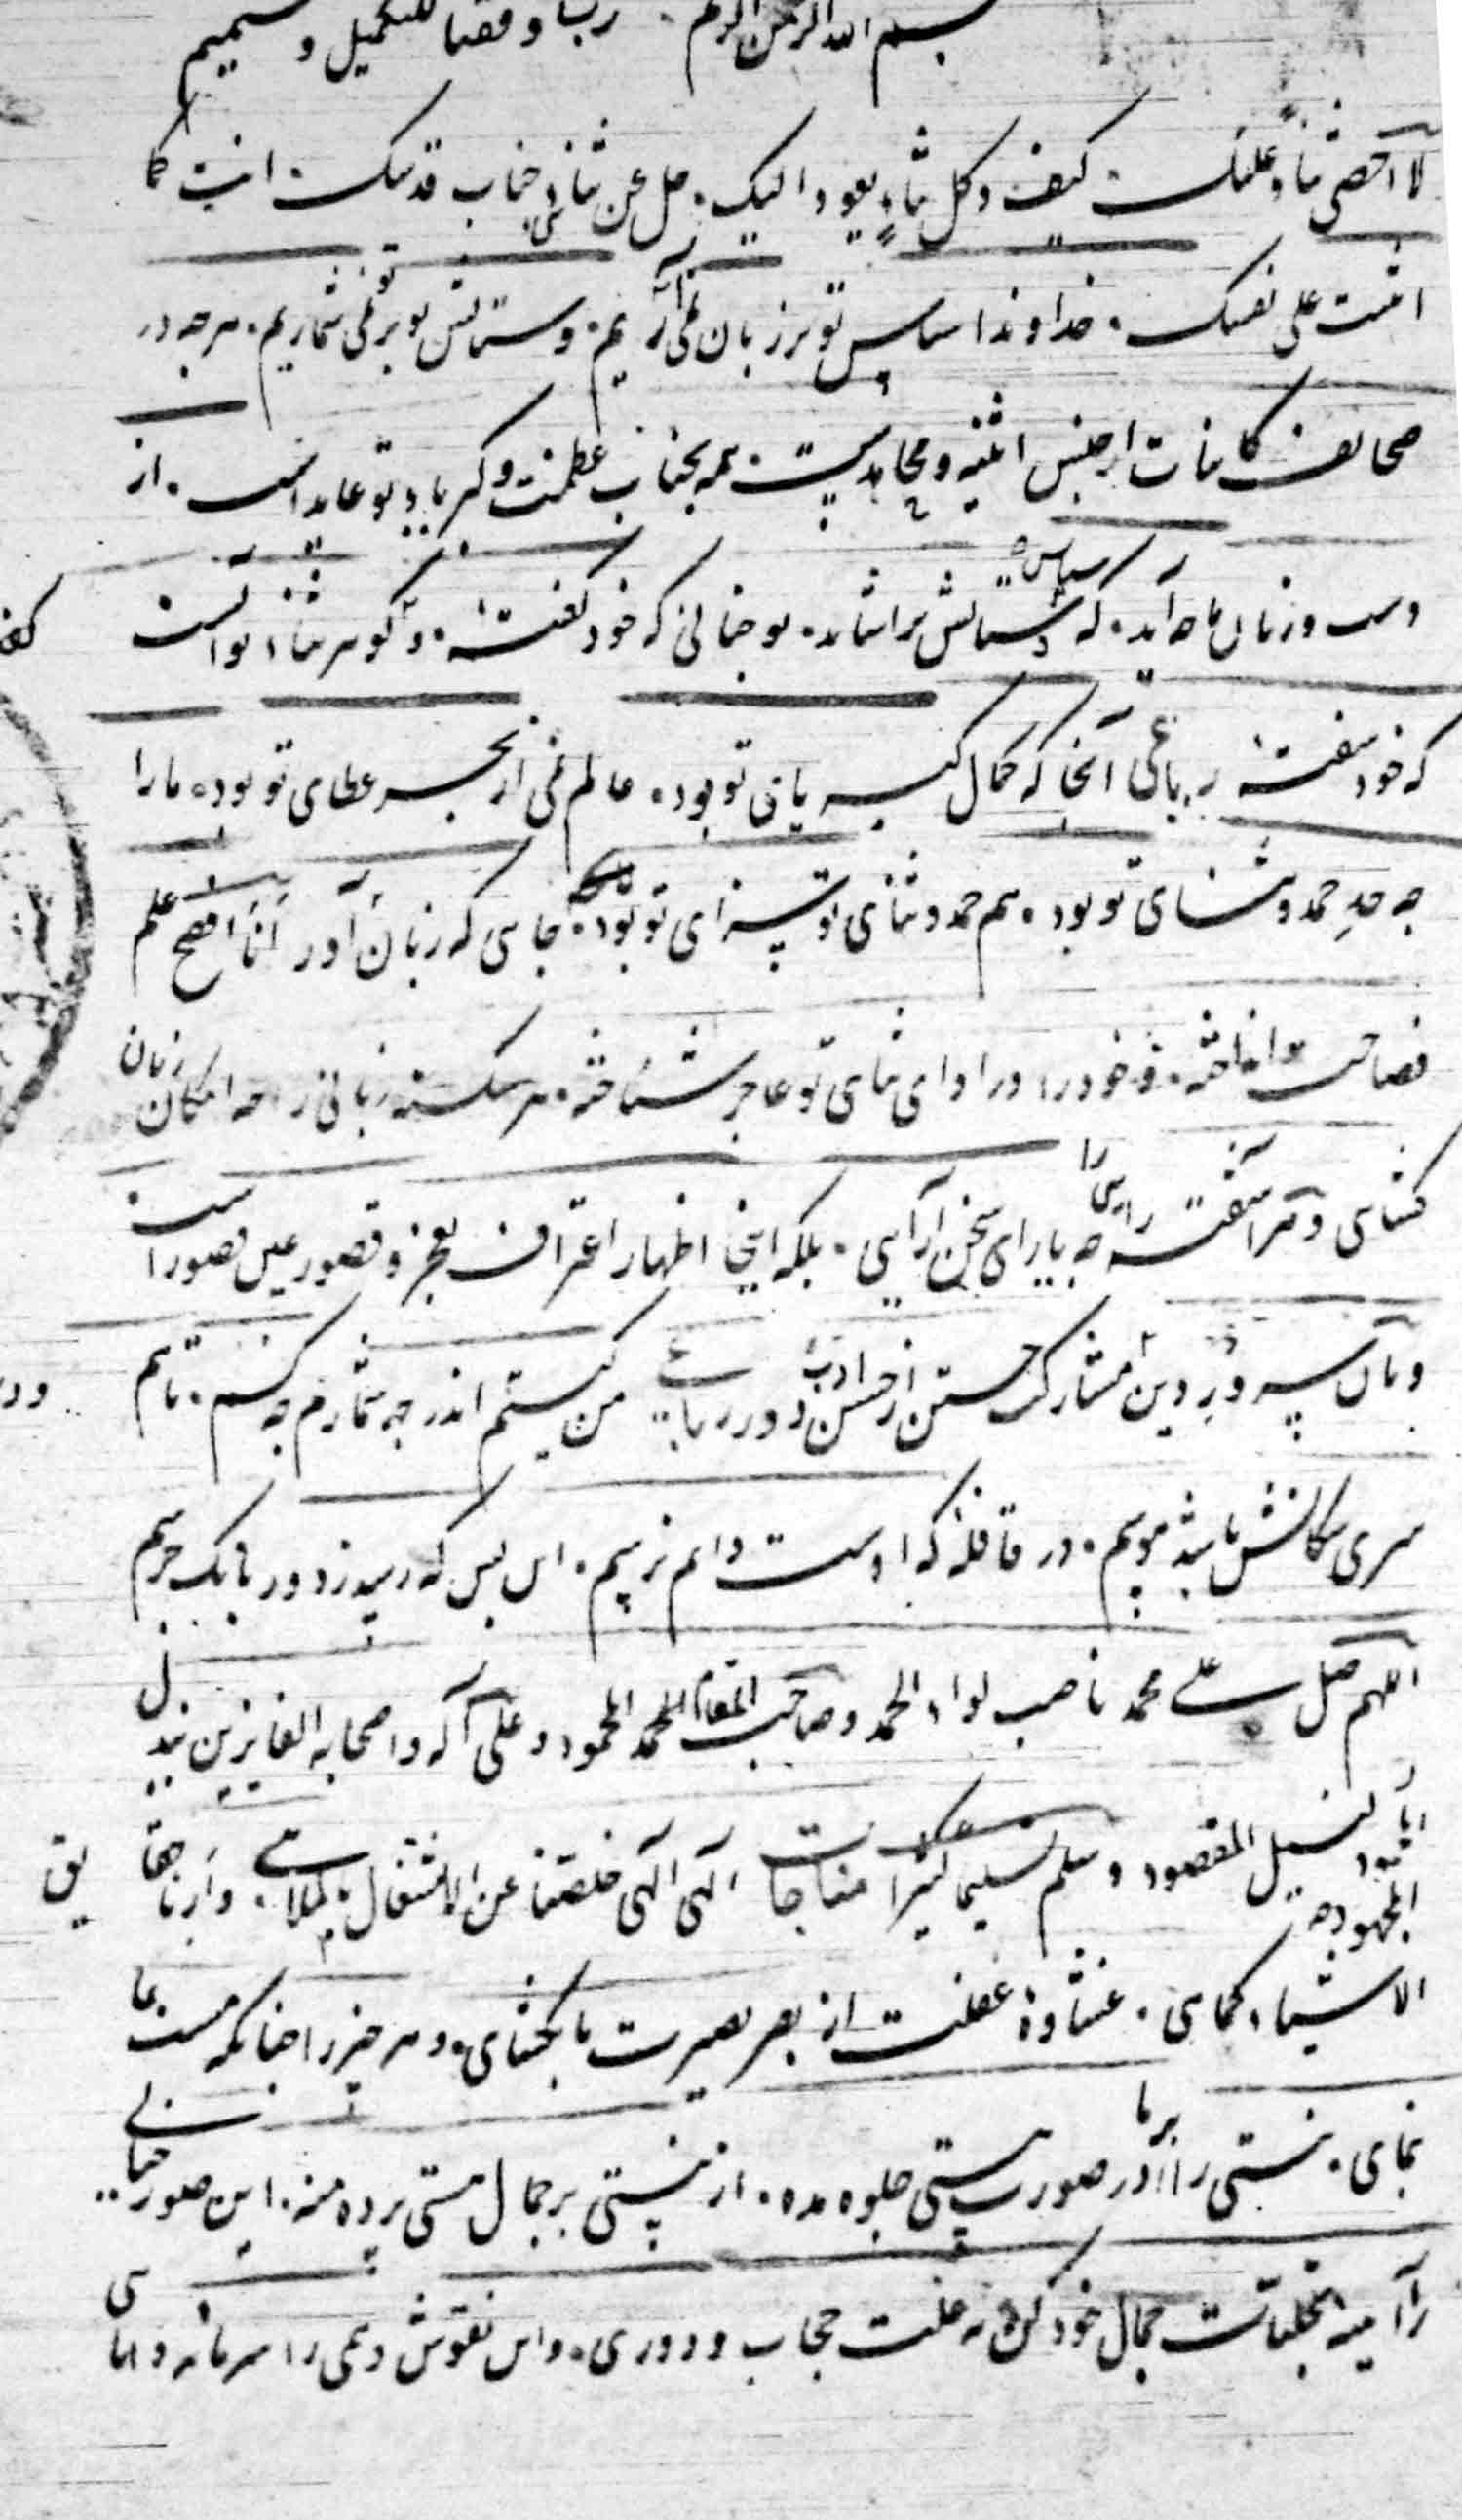 بسم الله الرحمن الرحیم . رب وفقنا للتکمیل و التتمیم
لا احصی ثناء علیک . کیف و کل ثناء یعود الیک . جل عن ثنائی جناب قدسک . انت کما
اثنیت علی نفسک . خداوندا سپاس تو بر زبان نمی آریم . و ستایش تو بر تو نمی شماریم . هر چه در
صحایف کاینات از جنس اثنیه و محامدست . همه بجناب عظمت و کبریاء تو عایداست . از
دست و زبان ما چه آید . که سپاس و ستایش ترا شاید . تو چنانی که خود گفتهٔ . و گوهر ثناء تو آنست
که خود سفتهٔ رباعی آنجا که کمال کبریائی تو بود . عالم نمی از بحر عطای تو بود . مارا
چه حدِ حمد و ثنای تو بود . هم حمد و ثنای تو سزای تو بود . جایی که زبان آور انا افصح علم
فصاحت انداخته . و خود را در ادای ثنای تو عاجز شناخته . هر شکسته زبانی را چه امکان زبان
کشایی و هر آشفته رایی را چه یارای سخن آرایی . بلکه اینجا اظهار اعتراف بعجز و قصور عین قصور است
و با آن سرور دین مشارکت جستن از حسن ادب دور رباعی من کیستم اندر چه شمارم چه کسم . تا هم
سری سگانش باشد هوسم . در قافلهٔ که اوست دانم نرسم . این بس که رسد ز دور بانگ جرسم
اللهم صل علی محمد ناصب لواء الحمد و صاحب المقام المحمود و علی آله و اصحابه الفایزین ببذل
المجهود لنیل المقصود و سلم تسلیما کثیرا مناجات الهی الهی خلصنا عن الاشتغال بالملاهی . و ارنا حقایق
الاشیاء کماهی . غشاوهٔ غفلت از بصر بصیرت ما بکشای . و هر چیز را چنانکه هست بما
نمای . نیستی را بر ما در صورت هستی جلوه مده . از نیستی بر جمال هستی پرده منه . این صور خیالی
را آیینه تجلیات جمال خود کن نه علت حجاب و دوری . و این نقوش وهمی را سرمایه دانایی